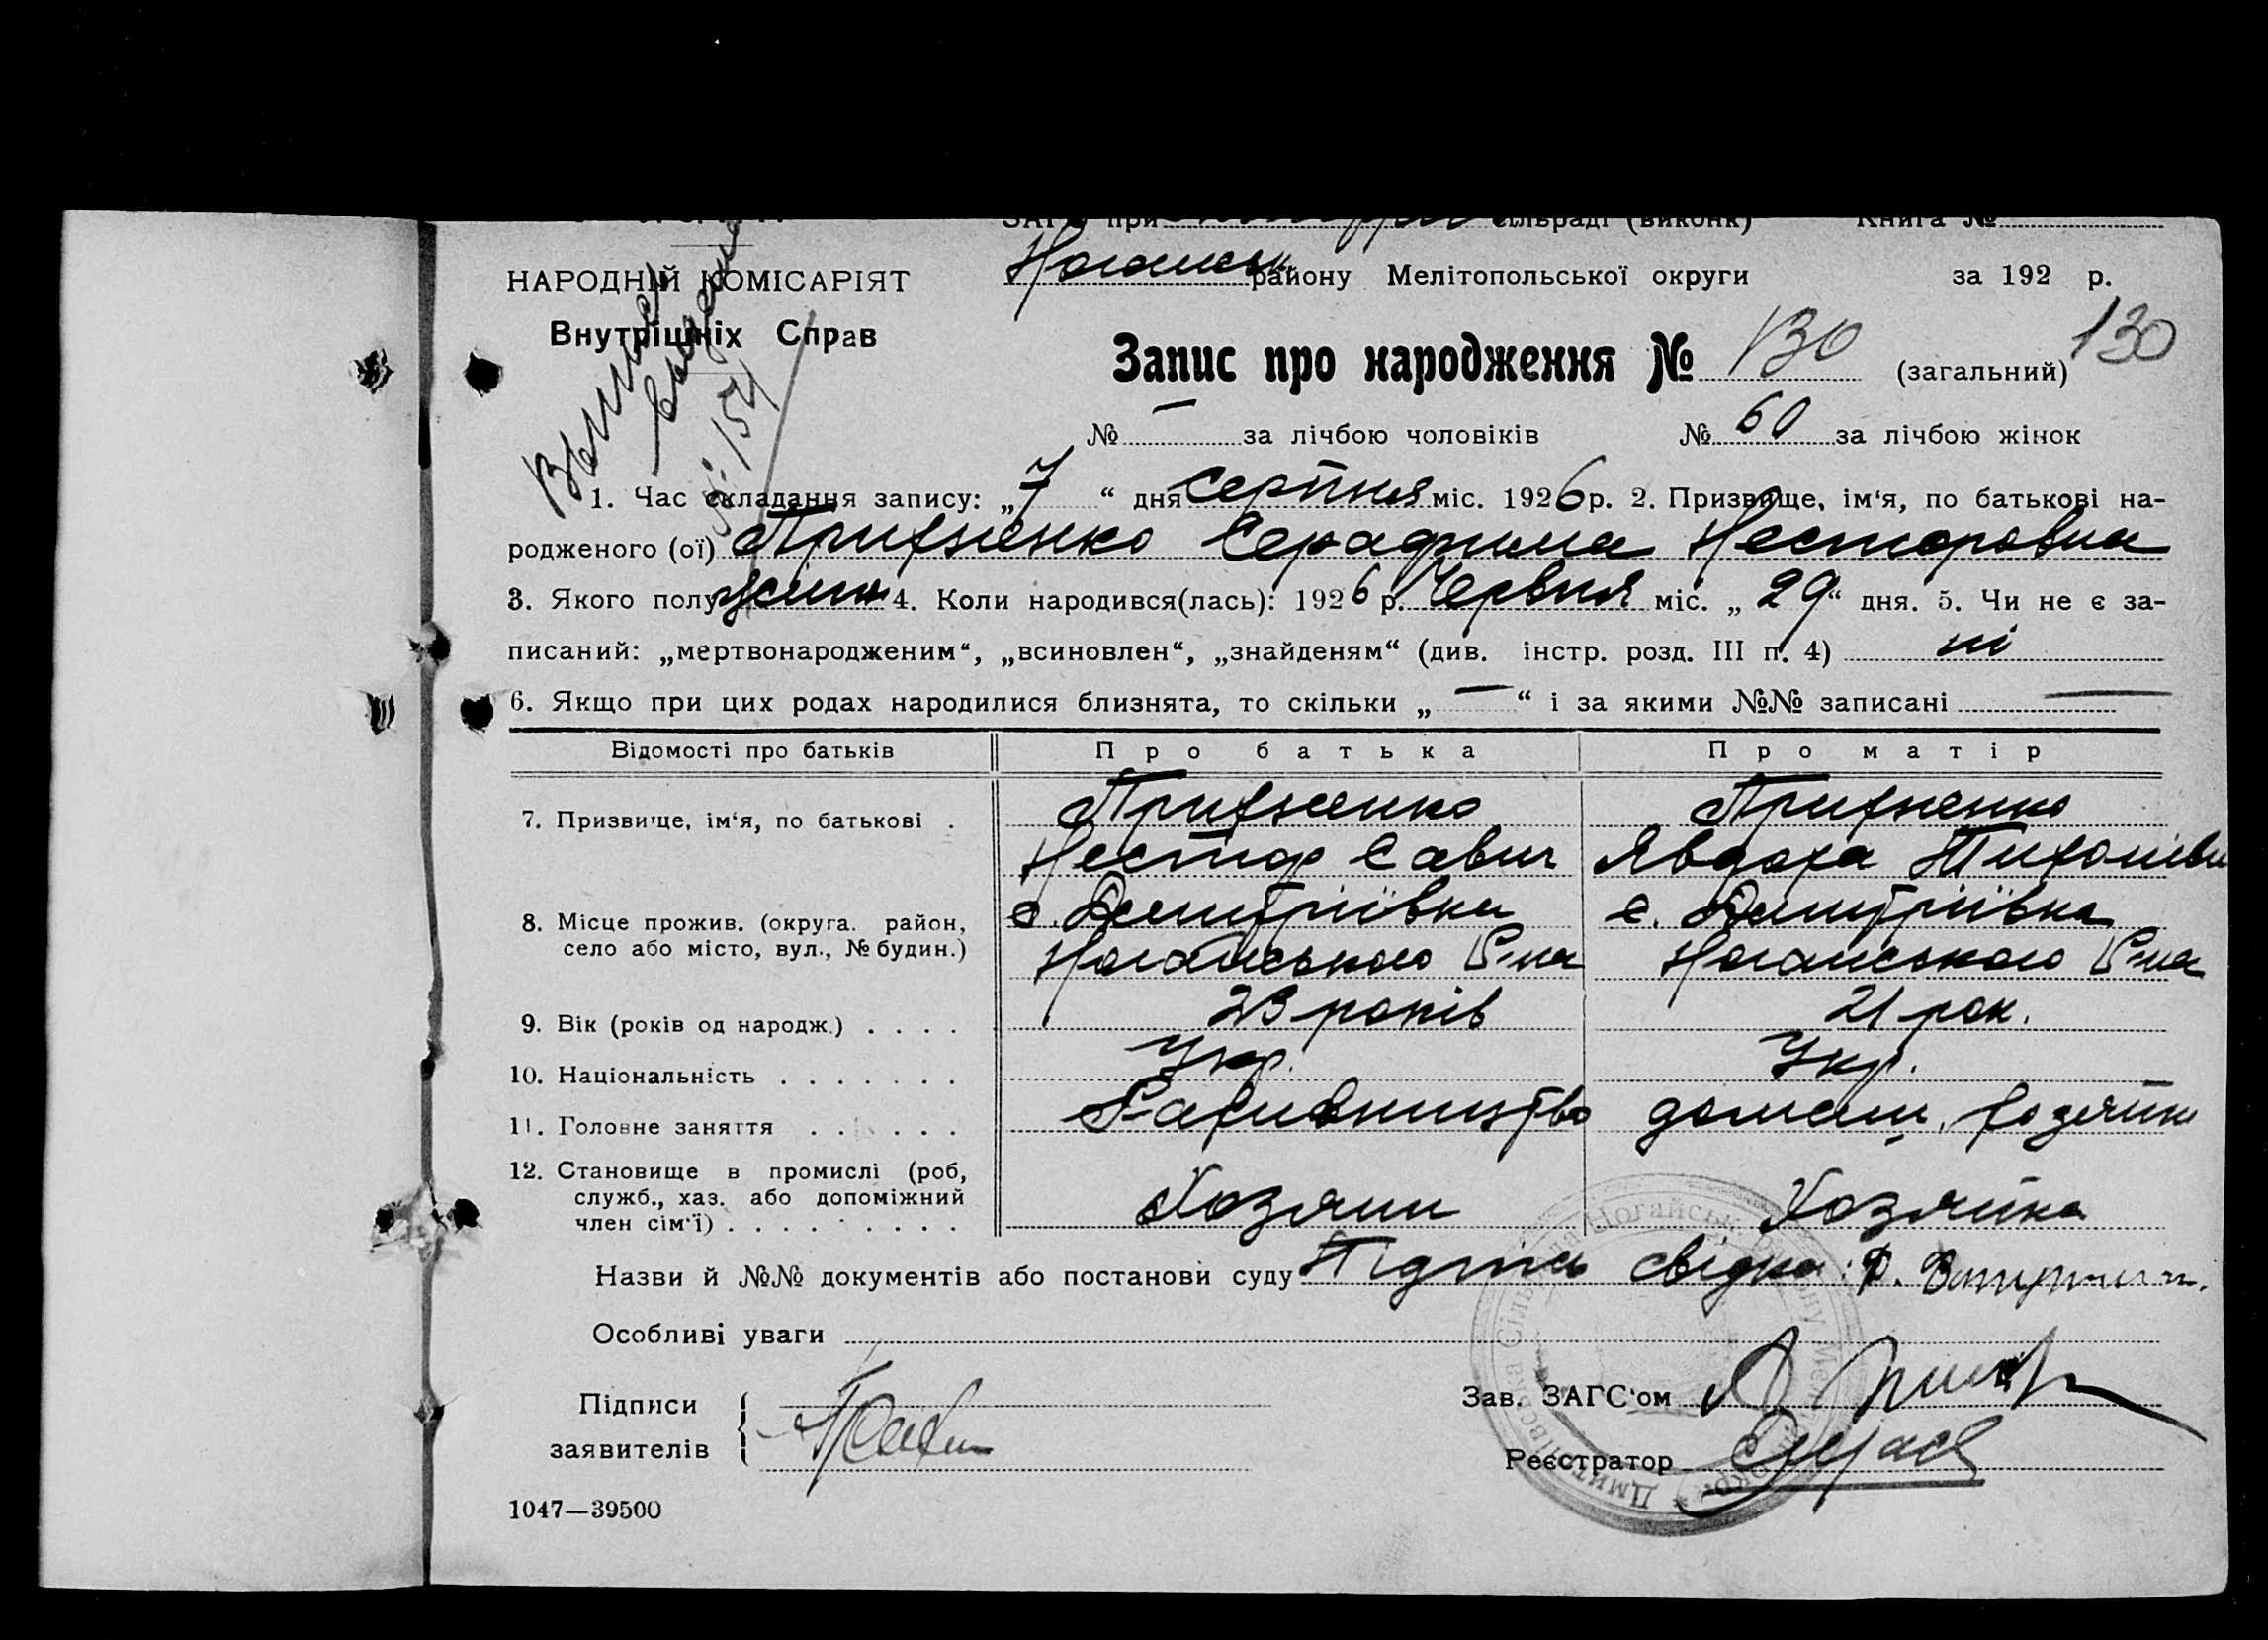 ЗАГС при сільраді (виконк) Книга №
НАРОДНІЙ КОМІСАРІЯТ району Мелітопольської округи за 192 р.
Внутрішніх Справ
Запис про народження № 130 (загальний) 130
№ — за лічбою чоловіків № 60 за лічбою жінок
1. Час складання запису: „7“ дня Серпня міс. 1926 р. 2. Призвище, ім‘я, по батькові на-
родженого (ої) Серафима Несторовна
3. Якого полу жіно 4. Коли народився(лась): 1926 р. Червня міс. „29“ дня. 5. Чи не є за-
писаний: „мертвонародженим“, „всиновлен“, „знайденям“ (див. інстр. розд. III п. 4) ні
6. Якщо при цих родах народилися близнята, то скільки „—“ і за якими №№ записані —
Відомості про батьків Про батька Про матір
7. Призвище, ім‘я, по батькові .
Нестор Савич Явдоха
8. Місце прожив. (округа. район, с. Дмитріївка с. Дмитріївка
село або місто, вул., № будин.) Ногайського Р-на Ногайського Р-на
9. Вік (років од народж.) . . . . 23 років 21 рок.
10. Національність . . . . . . . Укр. Укр.
11. Головне заняття . . . . . . домаш.
12. Становище в промислі (роб,
служб., хаз. або допоміжний Хозяин Хозяйка
член сім‘ї) . . . . . . . . .
Назви й №№ документів або постанови суду Підпись свідка: Ф.
Особливі уваги
Підписи
заявителів
Зав. ЗАГС‘ом
Реєстратор
1047—39500